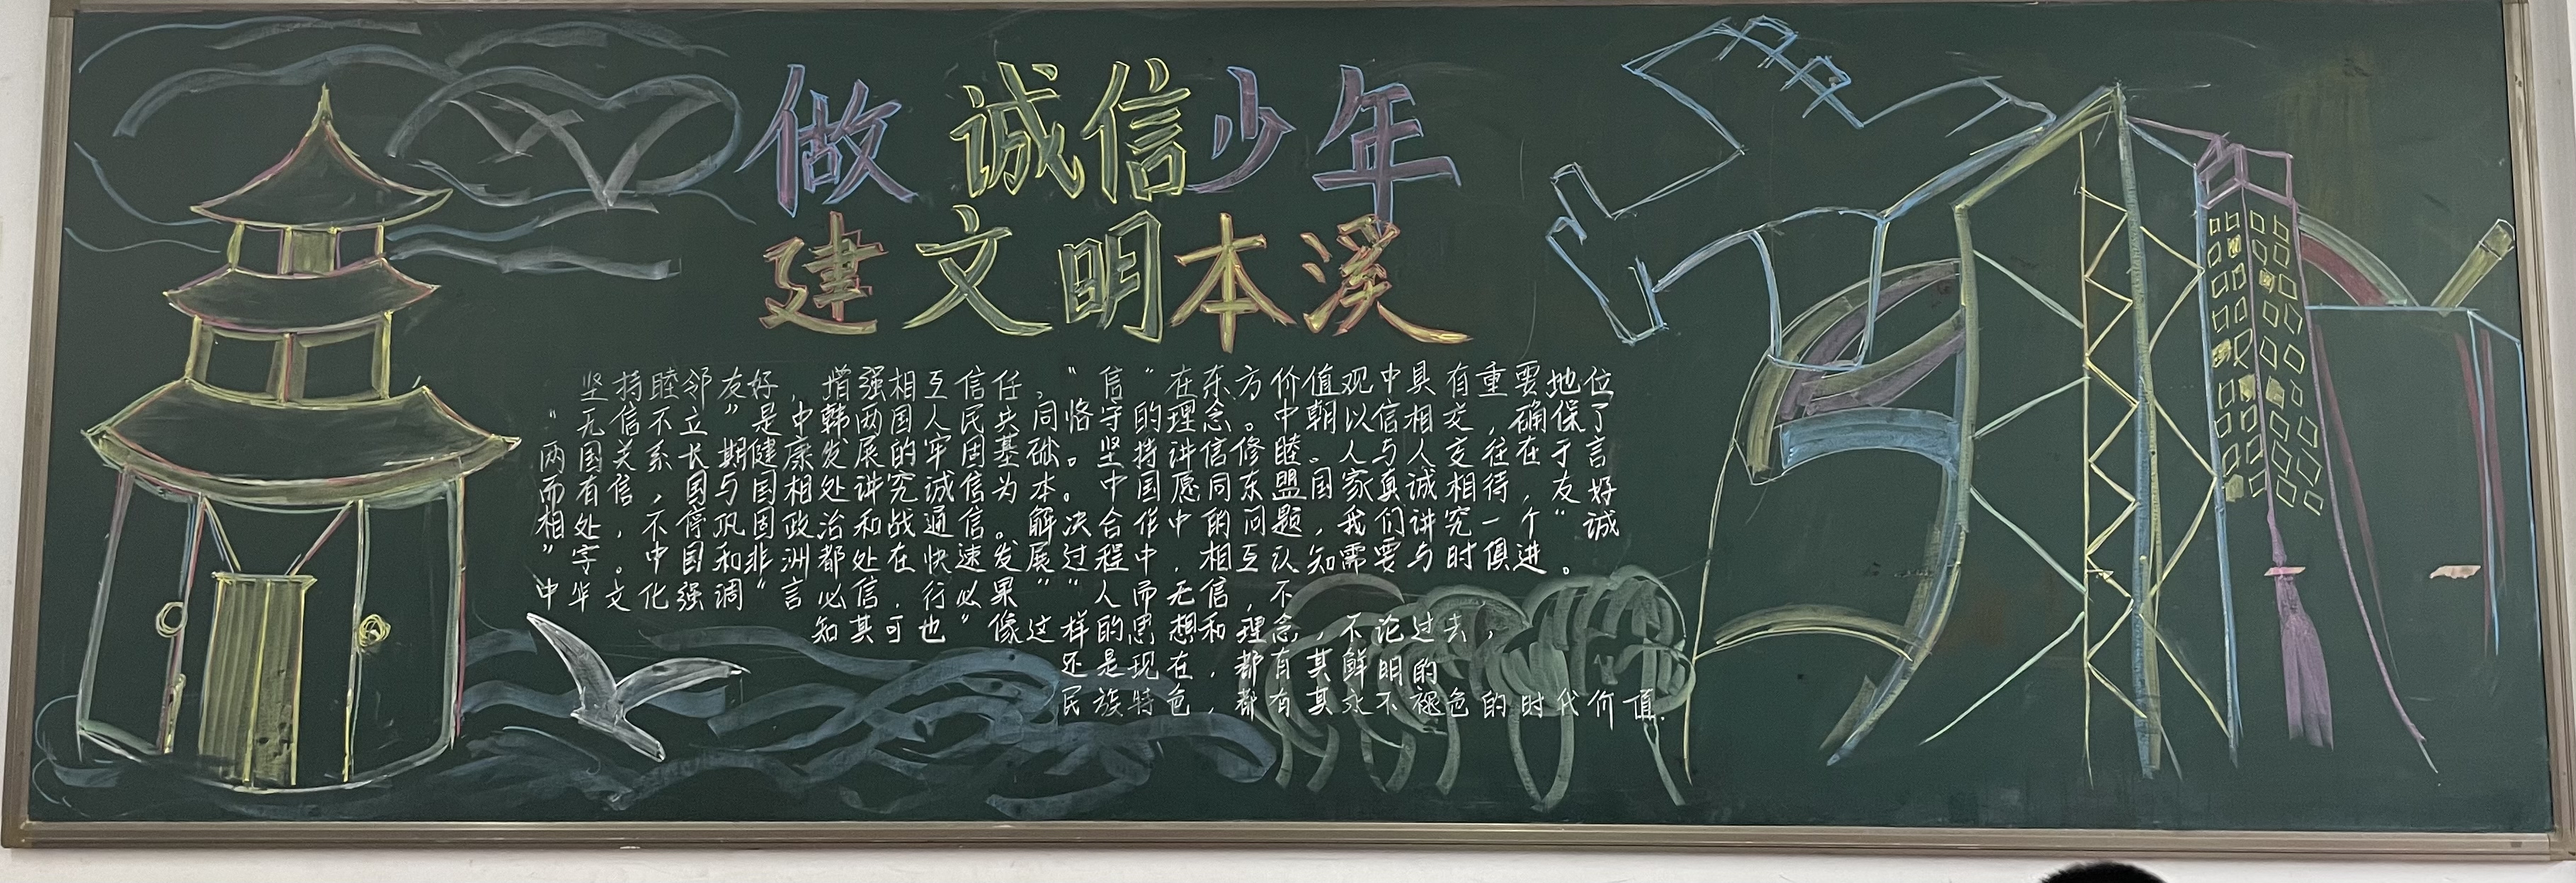 做诚信少年
建文明本溪
坚持睦邻友好，增强相互信任。“信”在东方价值观中具有重要地位
“无信不立”是中韩两国人民共同恪守的理念。中朝以信相交，确保了
两国关系长期健康发展的牢固基础。坚持讲信修睦。人与人交往在于言
而有信，国与国相处讲究诚信为本。中国愿同东盟国家真诚相待，友好
相处，不停巩固政治和战通信。解决合作中的问题，我们讲究一个“诚
”字。中国和非洲都处在快速发展过程中，相互认知需要与时俱进。
中华文化强调“言必信，行必果”“人而无信，不
知其可也”像这样的思想和理念，不论过去，
还是现在，都有其鲜明的
民族特色，都有其永不褪色的时代价值.